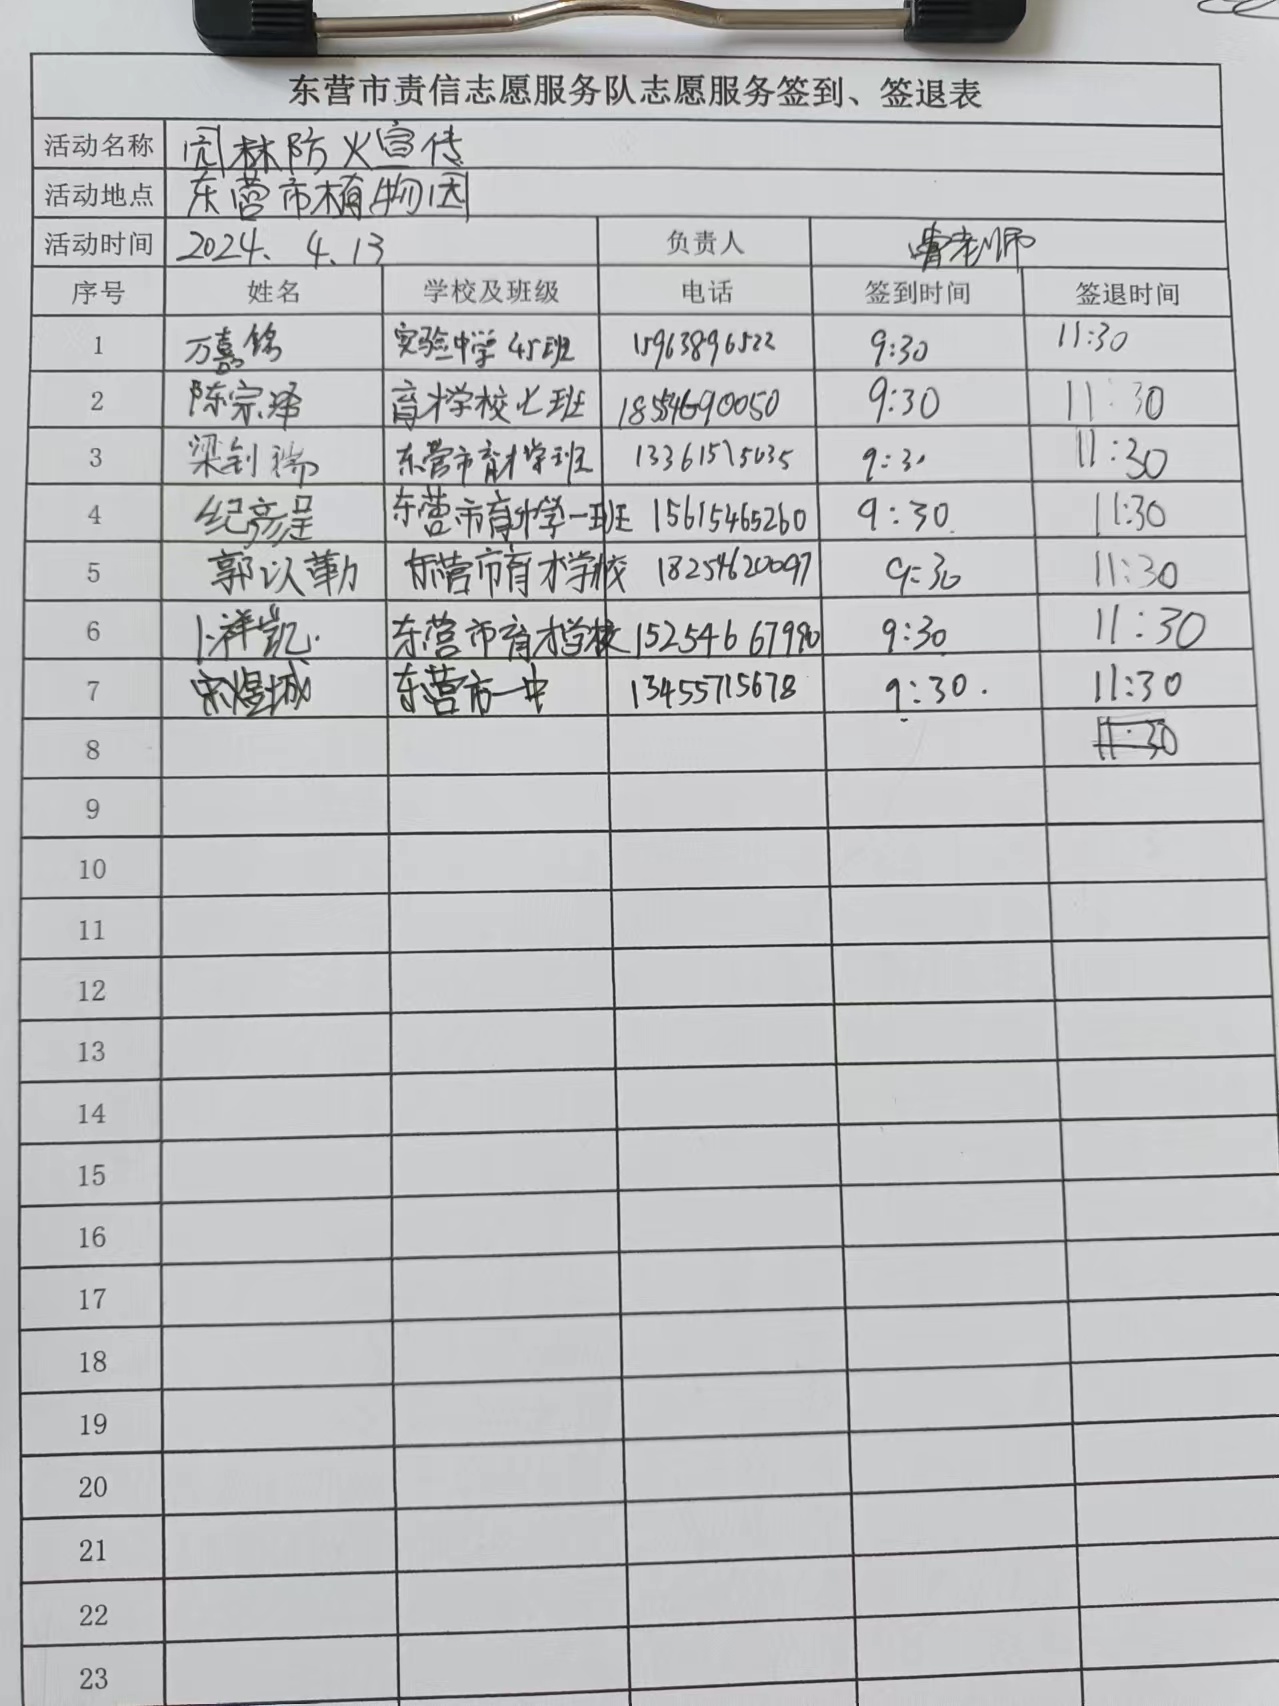 东营市责信志愿服务队志愿服务签到、签退表
活动名称 园林防火宣传
活动地点 东营市植物园
活动时间 2024.4.13 负责人 曹老师
序号 姓名 学校及班级 电话 签到时间 签退时间
1 万嘉铭 实验中学45班 15963896522 9:30 11:30
2 陈宗泽 育才学校七班 18554690050 9:30 11:30
3 梁钊瑞 东营市育才学班 13361515635 9:30 11:30
4 纪彦呈 东营市育才学一班 15615465260 9:30 11:30
5 郭以勤 东营市育才学校 18254620097 9:30 11:30
6 卜祥凯. 东营市育才学校 15254667990 9:30 11:30
7 宋煜城 东营市一中 13455715678 9:30. 11:30
8 11:30
9
10
11
12
13
14
15
16
17
18
19
20
21
22
23